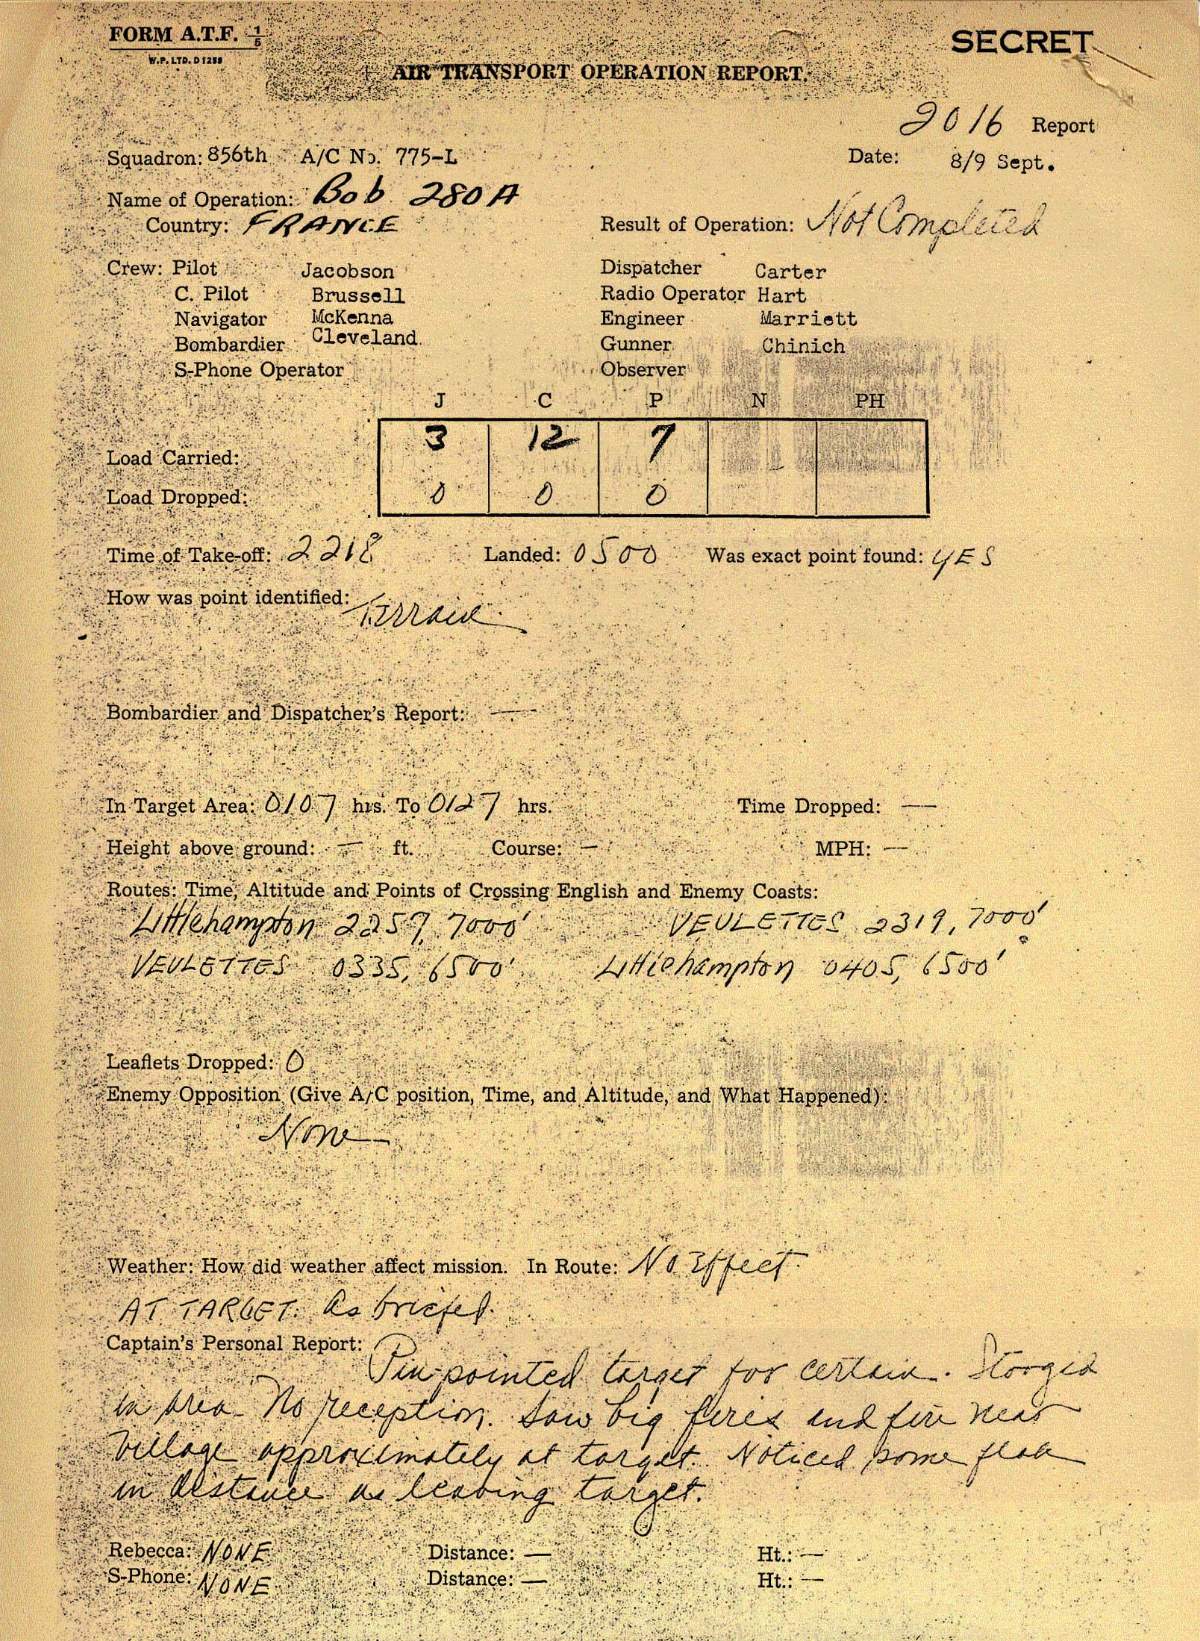 FORM A.T.F. 1/5
W.P. LTD. D1258
SECRET
AIR TRANSPORT OPERATION REPORT.
2016 Report
Squadron: 856th A/C No. 775-L Date: 8/9 Sept.
Name of Operation: Bob 280A
Country: FRANCE Result of Operation: Not Completed
Crew: Pilot Jacobson Dispatcher Carter
C. Pilot Brussell Radio Operator Hart
Navigator McKenna Engineer Marriett
Bombardier Cleveland Gunner Chinich
S-Phone Operator Observer
J C P N PH
Load Carried: 3 12 7
Load Dropped: 0 0 0
Time of Take-off: 2218 Landed: 0500 Was exact point found: YES
How was point identified: Terrain
Bombardier and Dispatcher's Report: —
In Target Area: 0107 hrs. To 0127 hrs. Time Dropped: —
Height above ground: — ft. Course: — MPH: —
Routes: Time, Altitude and Points of Crossing English and Enemy Coasts:
Littlehampton 2257, 7000' VEULETTES 2319, 7000'
VEULETTES 0335, 6500' Littlehampton 0405, 6500'
Leaflets Dropped: 0
Enemy Opposition (Give A/C position, Time, and Altitude, and What Happened):
None
Weather: How did weather affect mission. In Route: No Effect.
AT TARGET: As briefed.
Captain's Personal Report: Pin-pointed target for certain. Stooged
in area. No reception. Saw big fires and fire near
village approximately at target. Noticed some flak
in distance as leaving target.
Rebecca: NONE Distance: — Ht.: —
S-Phone: NONE Distance: — Ht.: —